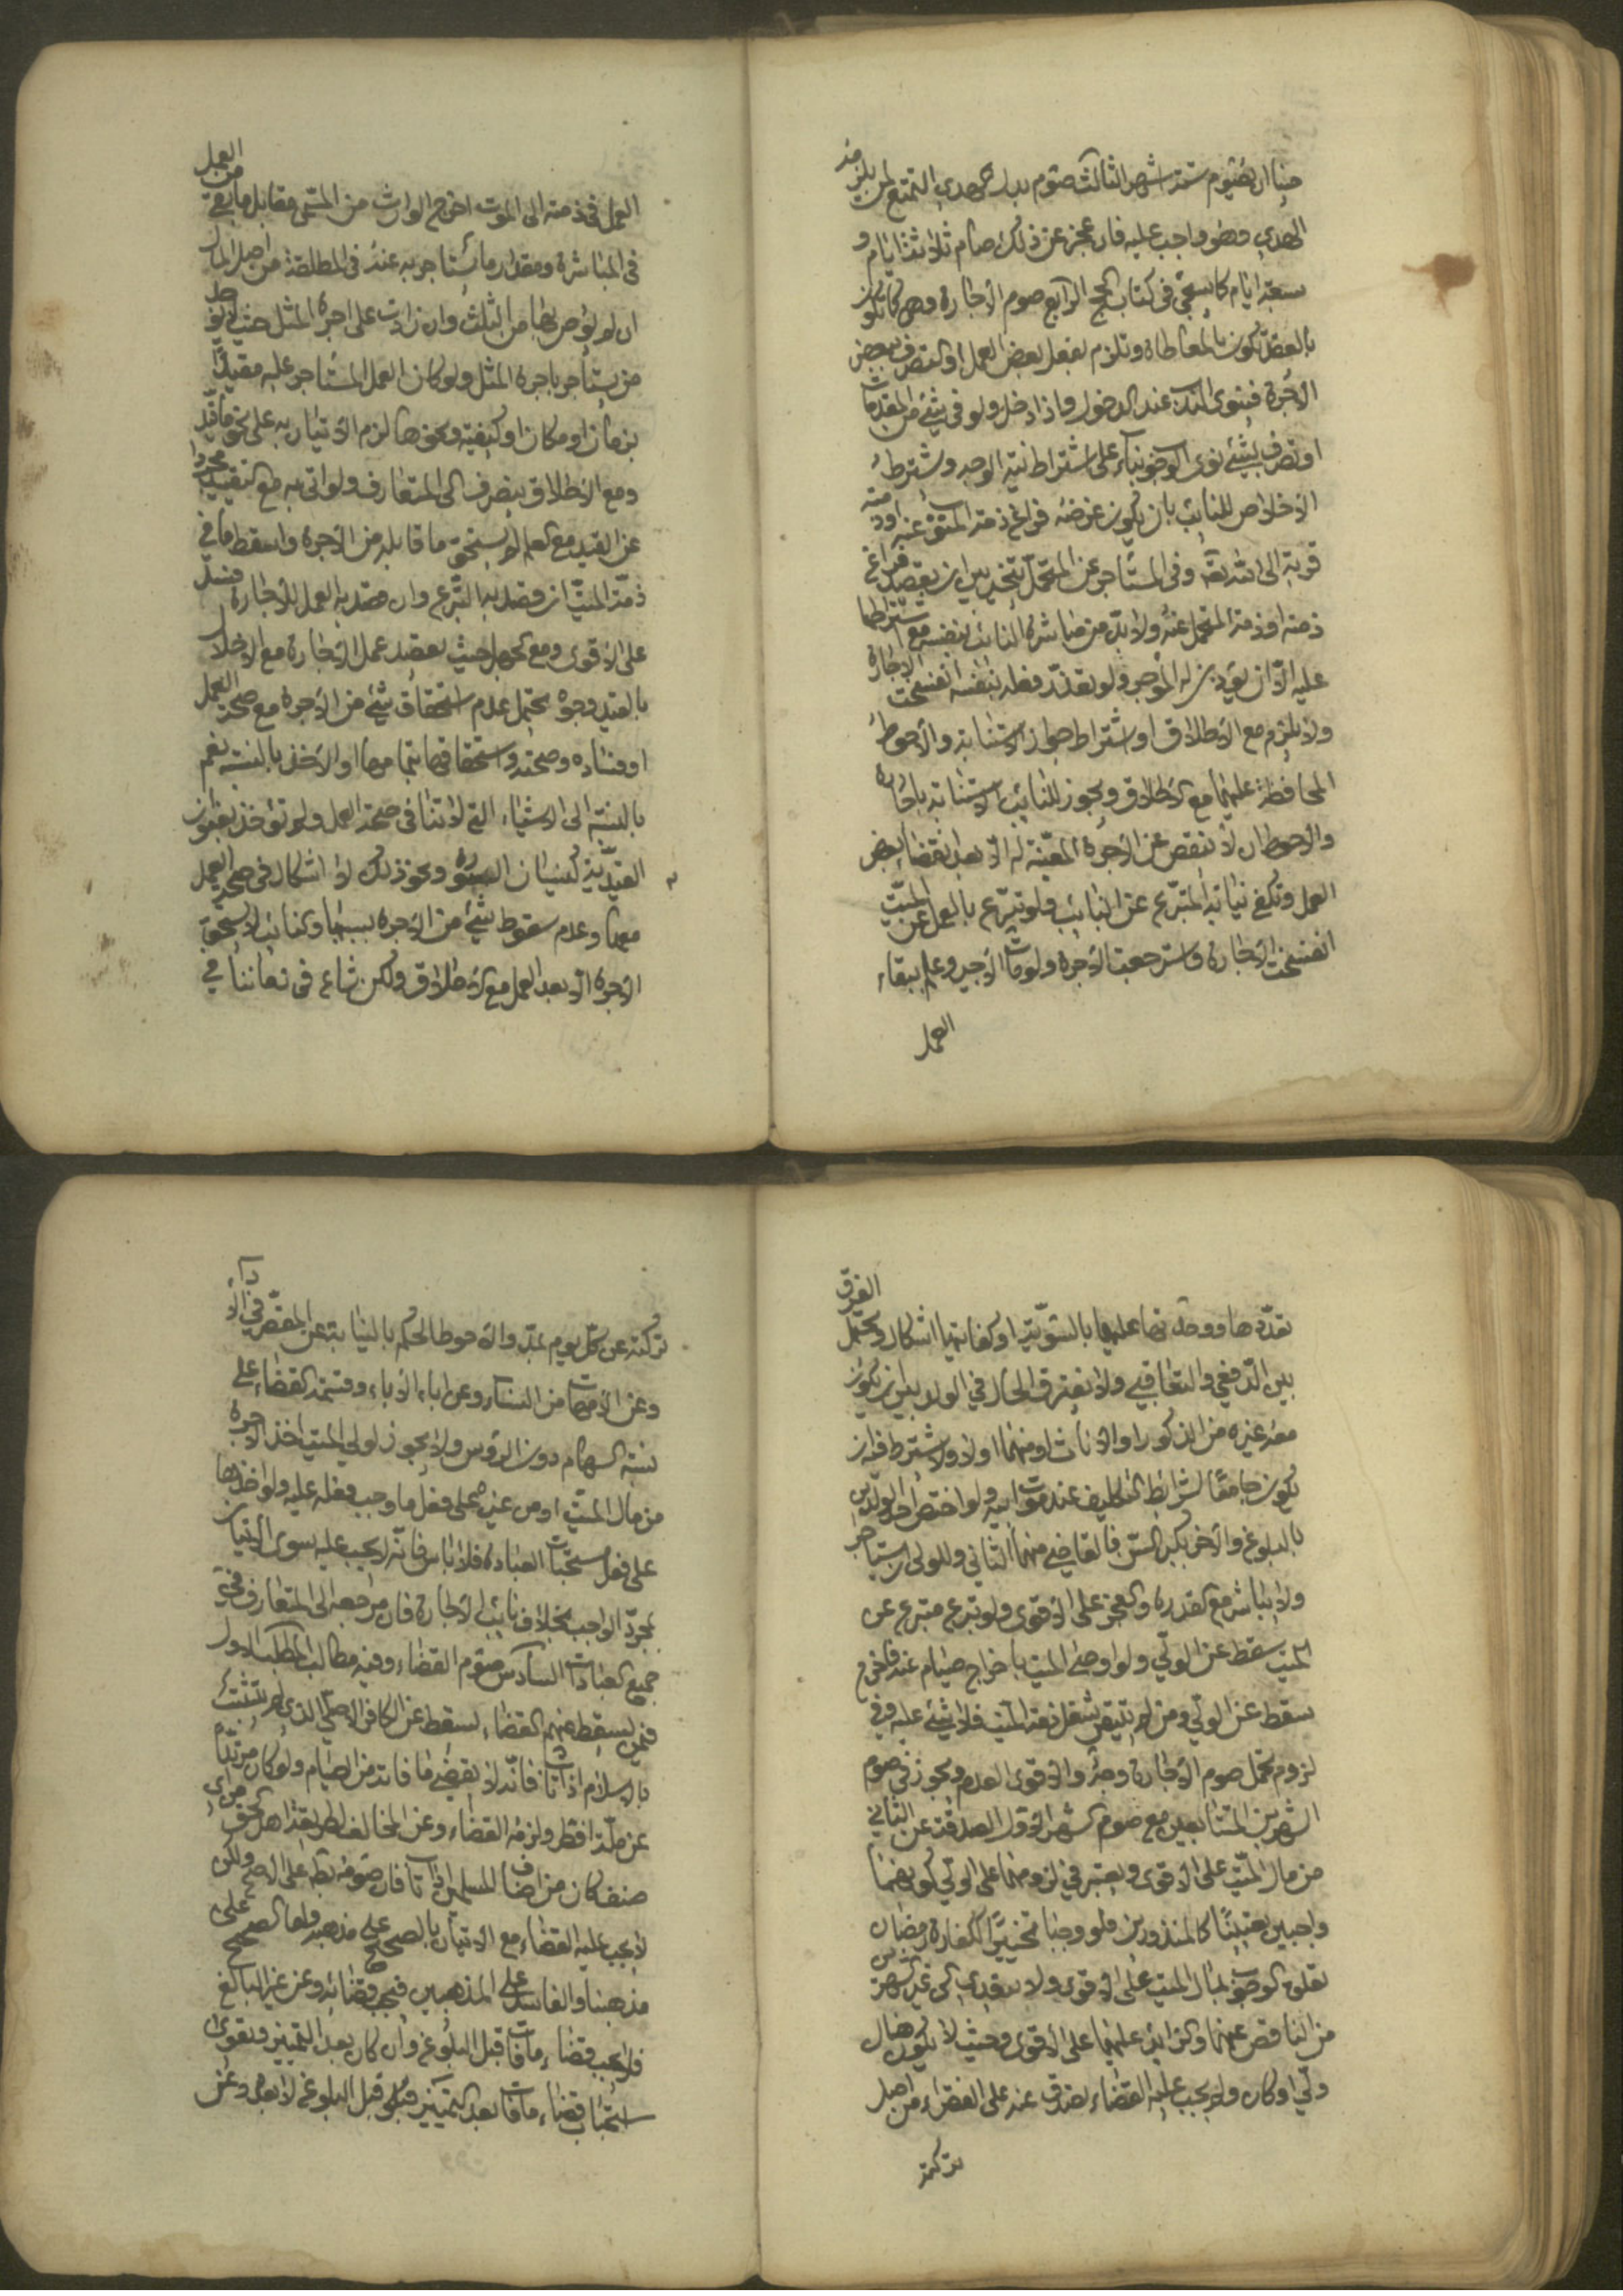 حينا ان يصوم ستة اشهر الثالث صوم بدل هدي التمتع لمن يلزمه
الهدي وهو واجب عليه فان عجز عن ذلك صام ثلاثة ايام و
سبعة ايام كما سيجئ في كتاب الحج الرابع صوم الاجارة وهي كما تكون
بالعقد تكون بالمعاطاة وتلزم بفعل بعض العمل او التصرف ببعض
الاجرة فينوى الندب عند الدخول واذا دخل ولو في شئ من المقدمات
او تصرف بشئ نوى الوجوب بناء على اشتراط نية الوجه ويشترط
الاخلاص للنائب بان يكون غرضه فراغ ذمة المتوفى عنه او ذمته
قربة الى الله تعالى وفي المستأجر عن المتحمل يتخير بين ان يقصد فراغ
ذمته او ذمة المتحمل عنه ولا بد من مباشرة النائب بنفسه مع اشتراطها
عليه الا ان يؤذن له الموجر ولو تعذر فعله بنفسه انفسخت الاجارة
ولا يلزم مع الاطلاق او اشتراط جواز الاستنابة والاحوط
المحافظة عليها مع الاطلاق ويجوز للنائب الاستنابة باجارة
والاحوط ان لا تنقص عن الاجرة المعينة له الا بعد انقضاء بعض
العمل وتكفي نيابة المتبرع عن النائب ولو تبرع بالعمل عن الميت
انفسخت الاجارة واسترجعت الاجرة ولو مات الاجير وعلم ببقاء
العمل
العمل في ذمته الى الموت اخرج الوارث من المسمى مقابل ما بقي من العمل
في المباشرة ومقدار ما يستأجر به عنه في المطلقة من اصل المال
ان لم يوص بها من الثلث وان زادت على اجرة المثل حيث لا يوجد
من يستأجر باجرة المثل ولو كان العمل المستأجر عليه مقيدا
بزمان او مكان او كيفية ونحوها لزم الاتيان به على نحو ما قيد
ومع الاطلاق ينصرف الى المتعارف ولو اتى به مع التقييد مجردا
عن القيد مع العلم لم يستحق ما قابله من الاجرة واسقط ما في
ذمة الميت ان قصد به التبرع وان قصد به العمل للاجارة فسد
على الاقوى ومع الجهل حيث يقصد عمل الاجارة مع الاخلال
بالقيد وجوه يحتمل عدم استحقاق شئ من الاجرة مع صحة العمل
او فساده وصحته واستحقاقها بتمامها او الاخذ بالنسبة نعم
بالنسبة الى الاشياء التي لا تنافي صحة العمل ولم تؤخذ بعنوان
القيدية كنسيان السورة ونحو ذلك لا اشكال في صحة العمل
معها وعدم سقوط شئ من الاجرة بسببها والنائب لا يستحق
الاجرة الا بعد العمل مع الاطلاق ولكن شاع في زماننا في
تعددها ووحدتها عليها بالسوية او كفايتها اشكال ويحتمل الفرق
بين الدفعي والتعاقبي ولا يفترق الحال في الولد بين ان يكون
معه غيره من الذكور او الاناث او منهما اولا ولا يشترط فيه ان
يكون جامعا لشرائط التكليف عند موت ابيه ولو اختص احد الولدين
بالبلوغ والاخر بكبر السن فالقاضي منهما الثاني وللولي ان يستأجر
ولا يباشر مع القدرة والعجز على الاقوى ولو تبرع متبرع عن
الميت سقط عن الولي ولو اوصى الميت باخراج صيام عنه فاخرج
سقط عن الولي ومن لم يتيقن شغل ذمة الميت فلا شئ عليه وفي
لزوم تحمل صوم الاجارة وجه والاقوى العدم ويجوز في صوم
الشهرين المتتابعين مع صوم الشهر الاول الصدقة عن الثاني
من مال الميت على الاقوى ويعتبر في لزومهما على الولي كونهما
واجبين تعيينا كالمنذورين فلو وجبا تخييرا ككفارة رمضان
تعلق الوجوب بمال الميت على الاقوى ولا يتعدى الى غير الشهرين
من الناقص عنهما والزايد عليهما على الاقوى وحيث لا يكون هناك
ولي او كان ولم يجب عليه القضاء تصدق عنه على الفقراء من اصل
تركته
تركته عن كل يوم بمد والاحوط الحكم بالنيابة عن المقصر في الاداء
وعن الامهات من النساء وعن اباء الاباء وقسمة القضاء على
نسبة السهام دون الرؤس ولا يجوز لولي الميت اخذ الاجرة
من مال الميت او من غيره على فعل ما وجب فعله عليه ولو اخذها
على فعل مستحبات العبادة فلا باس فانه لا يجب عليه سوى الاتيان
بمجرد الواجب بخلاف نائب الاجارة فان مرجعه الى المتعارف في
جميع العبادات السادس صوم القضاء وفيه مطالب المطلب الاول
فيمن يسقط عنهم القضاء يسقط عن الكافر الاصلي الذي لم يتشبث
بالاسلام اذا تاب فانه لا يقضي ما فاته من الصيام ولو كان مرتدا
عن ملة افطر ولزمه القضاء وعن المخالف لطريقة اهل الحق من اي
صنف كان من اصناف المسلمين اذا تاب فان صومه باطل على الاصح ولكن
لا يجب عليه القضاء مع الاتيان بالصحيح على مذهبه واما الصحيح على
مذهبنا والفاسد على المذهبين فيجب قضائه وعن غير البالغ
فلا يجب قضاء ما فات قبل البلوغ وان كان بعد التمييز ويقوى
استحباب قضاء ما فات بعد التمييز قبل البلوغ لا بعده وعن